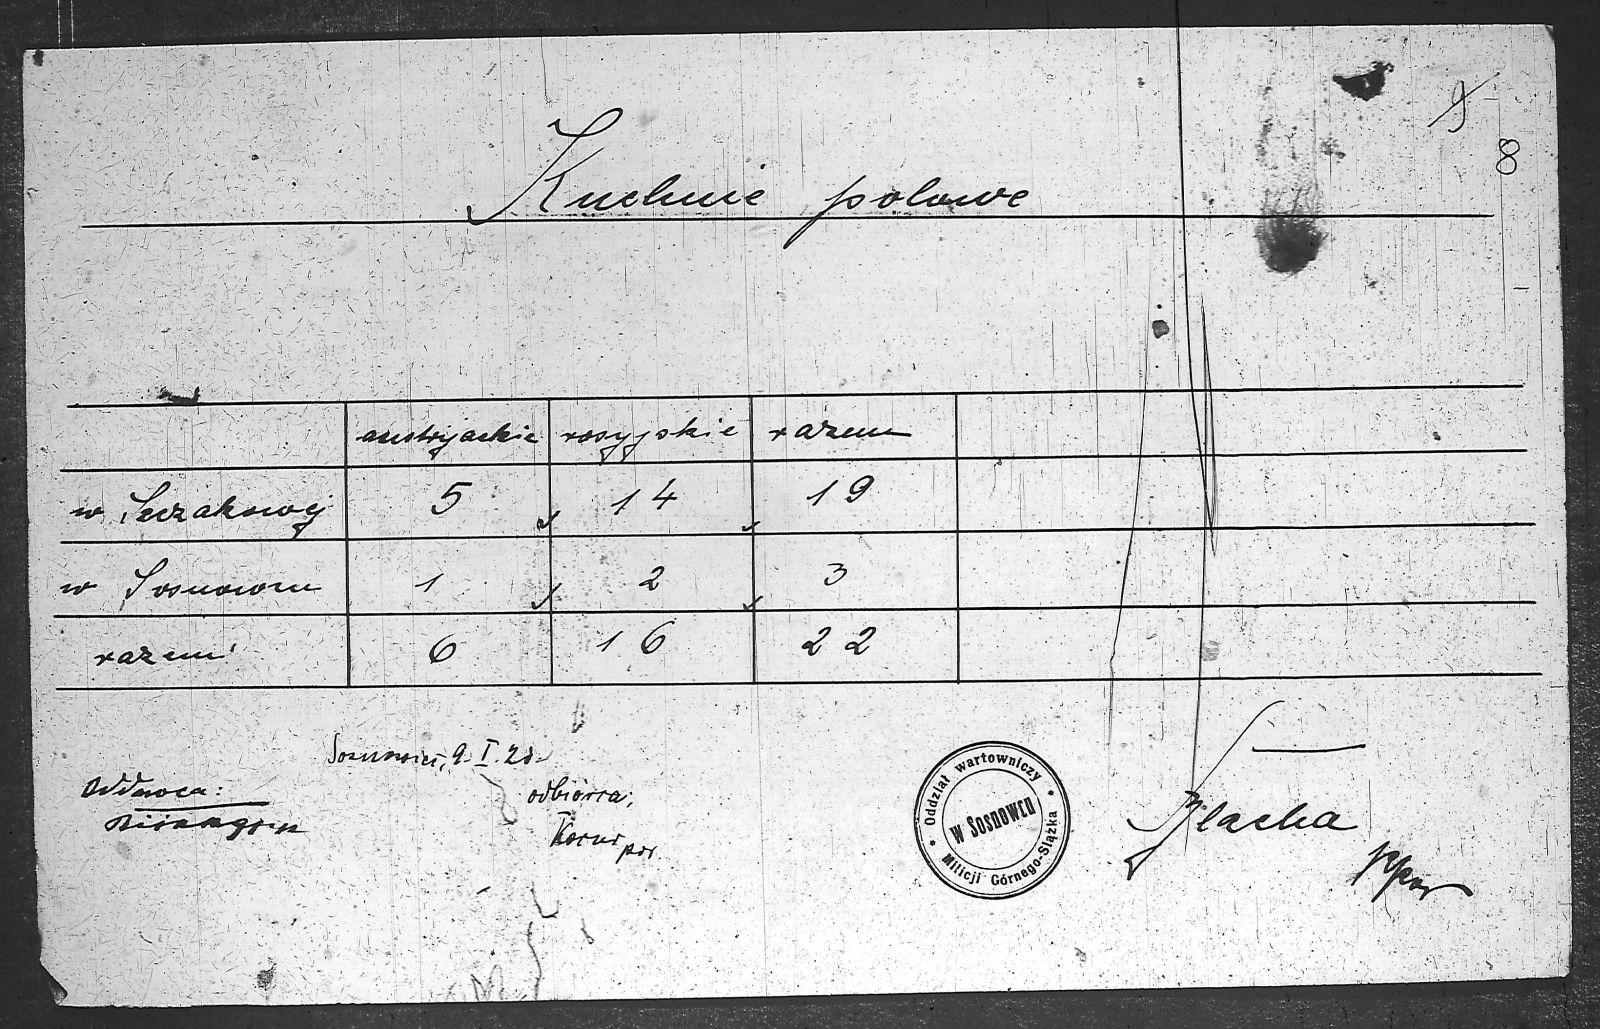 9
8
Kuchnie polowe
austryjackie rosyjskie razem
w Szczakowej 5 14 19
w Sosnowcu 1 2 3
razem 6 16 22
Sosnowiec, 9. I. 20.
Oddawca:
odbiorca:
por
Oddział wartowniczy
Milicji Górnego-Slązka
W Sosnowcu
Blacha
ppor